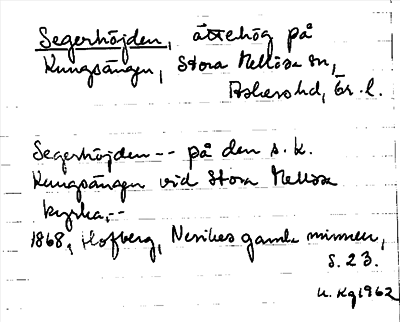 Segerhöjden, ättehög på
Kungsängen, Stora Mellösa sn,
Askers hd, Ör. l.
Segerhöjden -- på den s.k.
Kungsängen vid Stora Mellösa
kyrka, --
1868, Hofberg, Nerikes gamla minnen,
s. 23.
u. Kg 1962